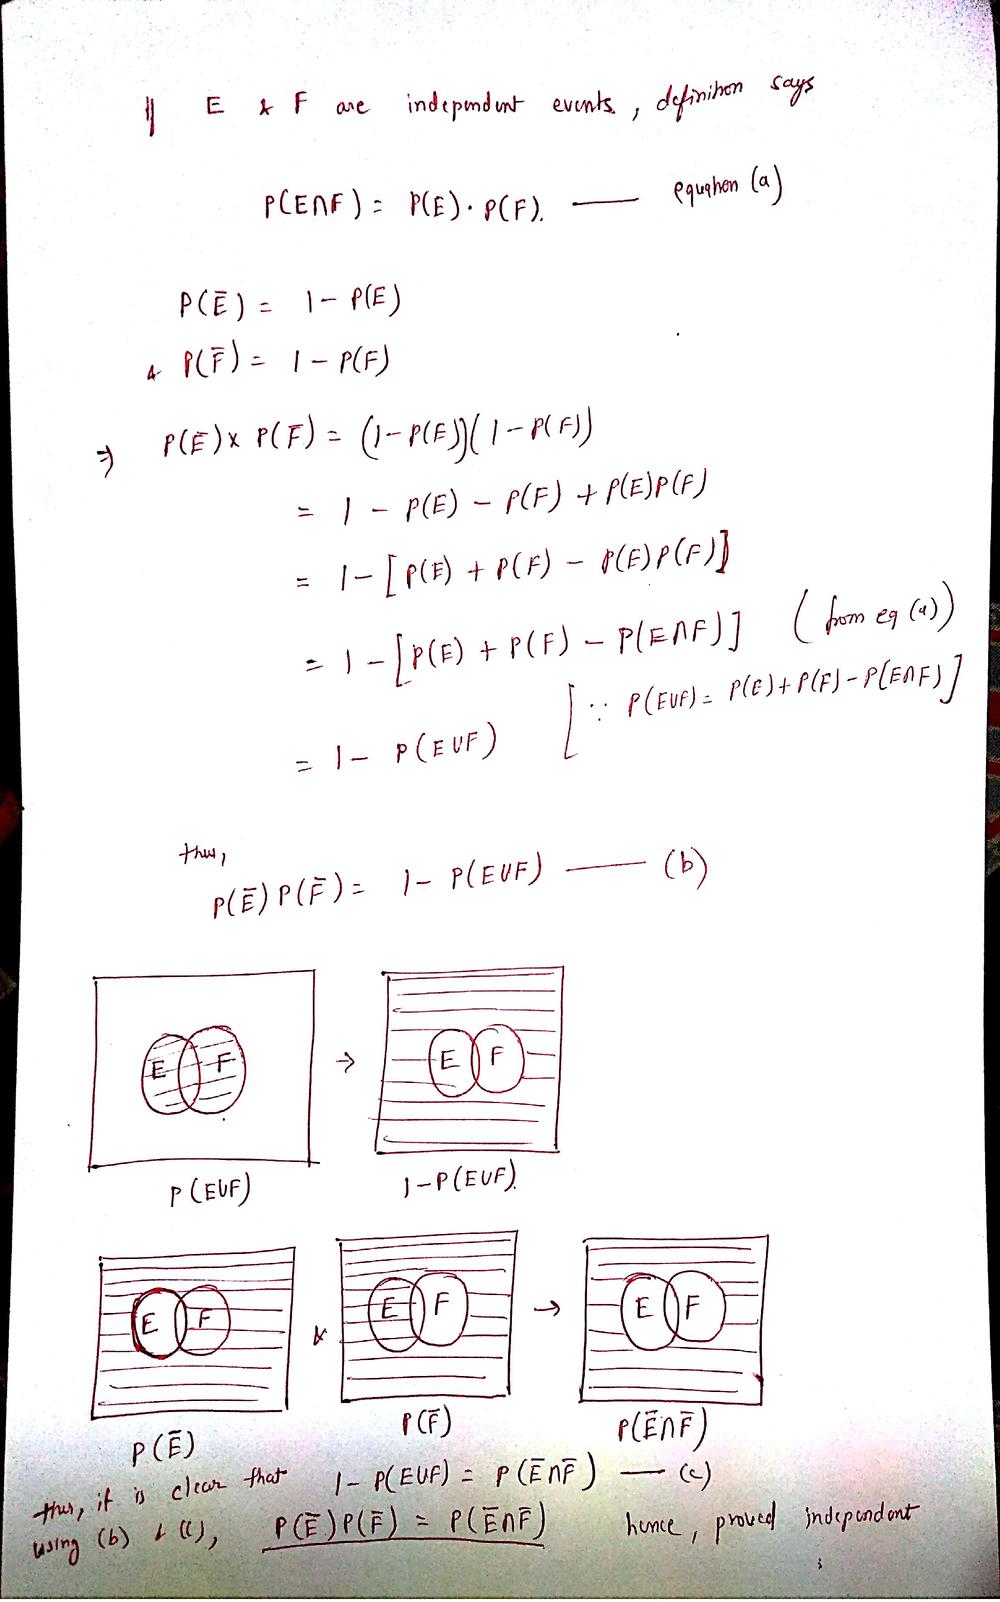 If E & F are independent events, definition says
P(E∩F) = P(E)·P(F). —— equation (a)
P(Ē) = 1 - P(E)
& P(F̄) = 1 - P(F)
⇒ P(Ē) x P(F̄) = (1-P(E))(1-P(F))
= 1 - P(E) - P(F) + P(E)P(F)
= 1-[P(E) + P(F) - P(E)P(F)]
= 1-[P(E) + P(F) - P(E∩F)] (from eq (a))
= 1- P(E∪F) [∵ P(E∪F) = P(E)+P(F)-P(E∩F)]
thus,
P(Ē)P(F̄) = 1- P(E∪F) —— (b)
E F → E F
P(E∪F) 1-P(E∪F).
E F & E F → E F
P(Ē) P(F̄) P(Ē∩F̄)
thus, it is clear that 1- P(E∪F) = P(Ē∩F̄) — (c)
using (b) & (c), P(Ē)P(F̄) = P(Ē∩F̄) hence, proved independent